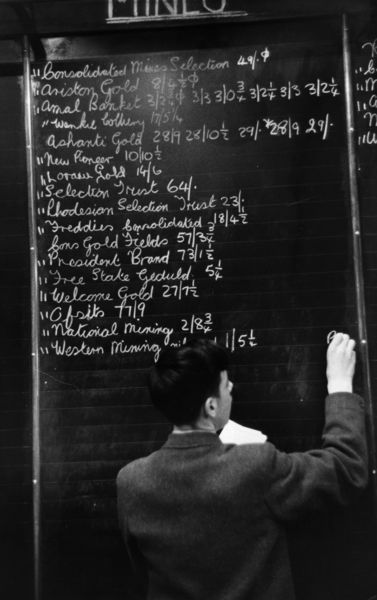 MINES
"Consolidated Mines Selection 49/-ϕ
"Ariston Gold 8/4½ϕ
"Amal Banket 3/2¼ϕ 3/3 3/0¾ 3/2¼ 3/3 3/2¼
" 17/5¼
Ashanti Gold 28/9 28/10½ 29/- *28/9 29/-
"New Pioneer 10/10½
"Loraine Gold 14/6
"Selection Trust 64/-
"Rhodesian Selection Trust 23/-
"Freddies Consolidated 18/4½
Cons Gold Fields 57/3¾
"President Brand 73/1½
"Free State Geduld 5¼
"Welcome Gold 27/7½
"Ofsits 77/9
"National Mining 2/8¾
"Western Mining 11/5¼